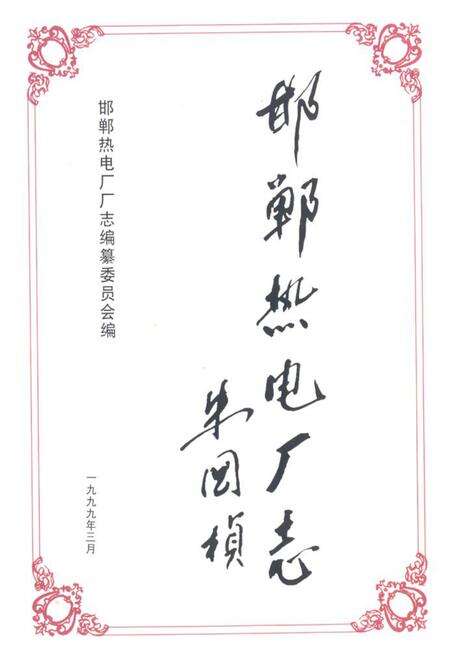 邯郸热电厂志
朱国桢
邯郸热电厂厂志编纂委员会编
一九九九年三月